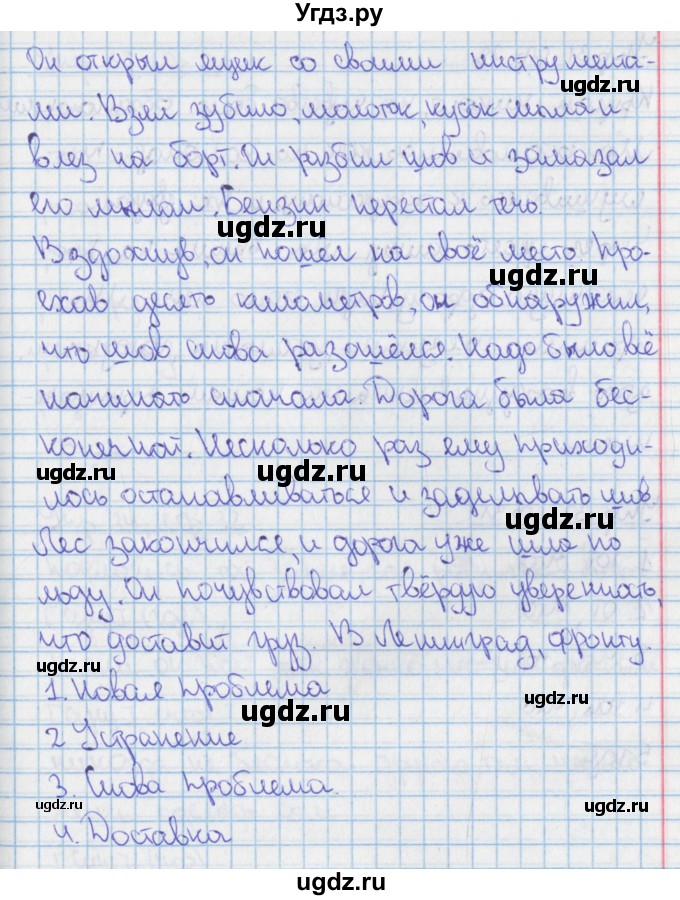 Угдз.ру
Он открыл ящик со своими инструмента-
ми. Взял зубило, молоток, кусок мыла и
влез на борт. Он разбил шов и замазал
его мылом. Бензин перестал течь.
Вздохнув, он пошел на своё место. Про-
ехав десять километров, он обнаружил,
что шов снова разошёлся. Надо было всё
начинать сначала. Дорога была бес-
конечной. Несколько раз ему приходи-
лось останавливаться и заделывать шов
Лес закончился, и дорога уже шла по
льду. Он почувствовал твёрдую уверенность,
что доставит груз. В Ленинград, фронту.
1. Новая проблема
2 Устранение
3. Снова проблема.
4. Доставка
ugdz.ru
ugdz.ru
ugdz.ru
ugdz.ru
ugdz.ru
ugdz.ru
ugdz.ru
ugdz.ru
ugdz.ru
ugdz.ru
ugdz.ru
ugdz.ru
ugdz.ru
ugdz.ru